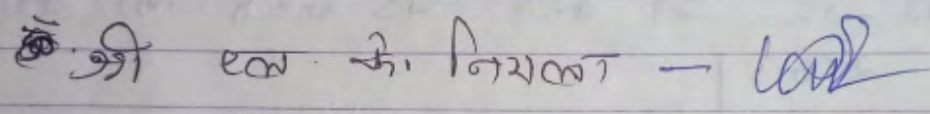 श्री एल. के. नियला –